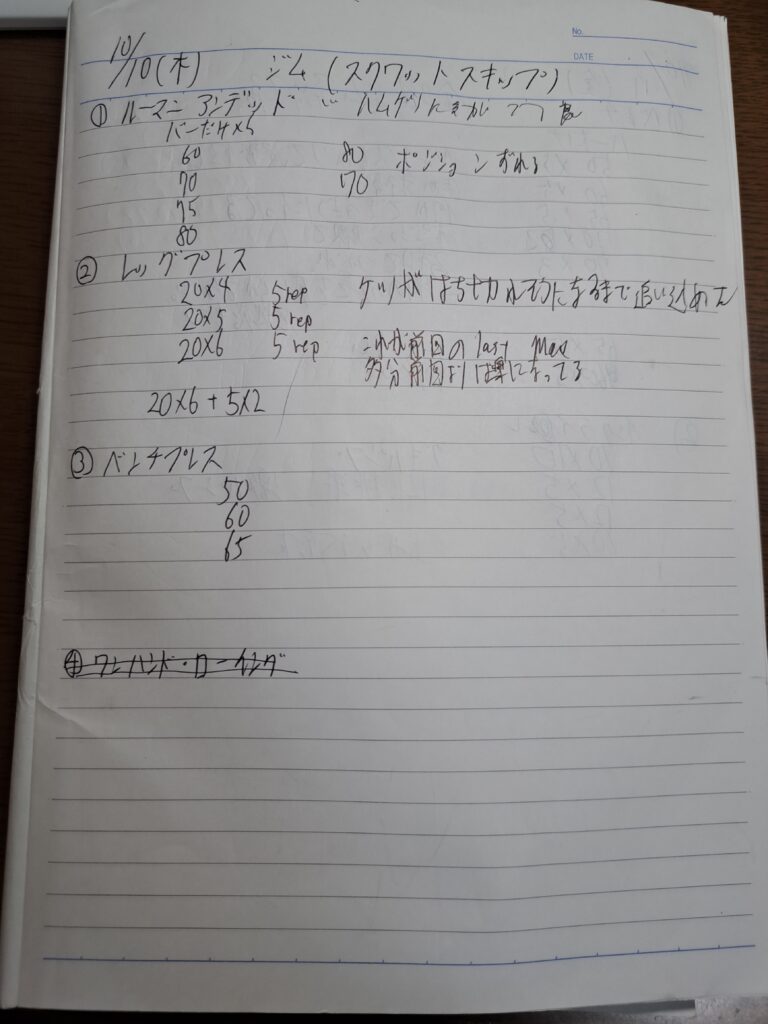 No.
DATE
10/10(木) ジム (スクワットスキップ)
① ルーマニアンデッド
バーだけ×5
60 80 ポジションずれる
70 70
75
80
② レッグプレス
20×4 5rep ケツがはち切れそうになるまで追い込めた
20×5 5rep
20×6 5rep これが前回のlast Max
多分前回よりは楽になってる
20×6+5×2
③ ベンチプレス
50
60
65
④ ワンハンド・ローイング